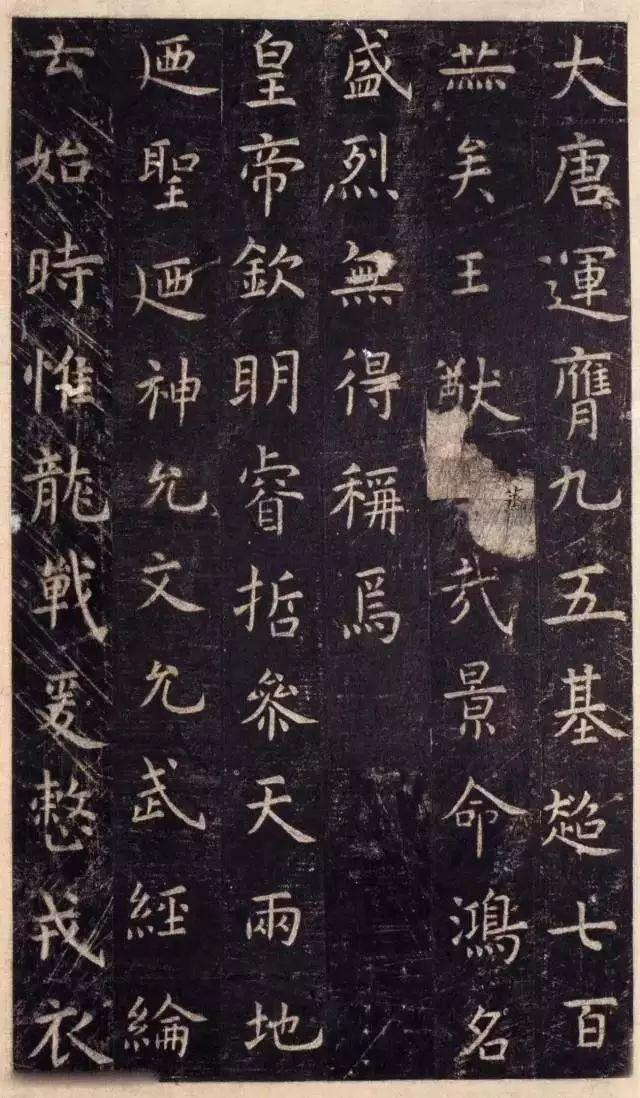 大唐運膺九五基超七百
赫矣王猷哉景命鴻名
盛烈無得稱焉
皇帝欽明睿哲參天兩地
迺聖迺神允文允武經綸
云始時惟龍戰爰整戎衣